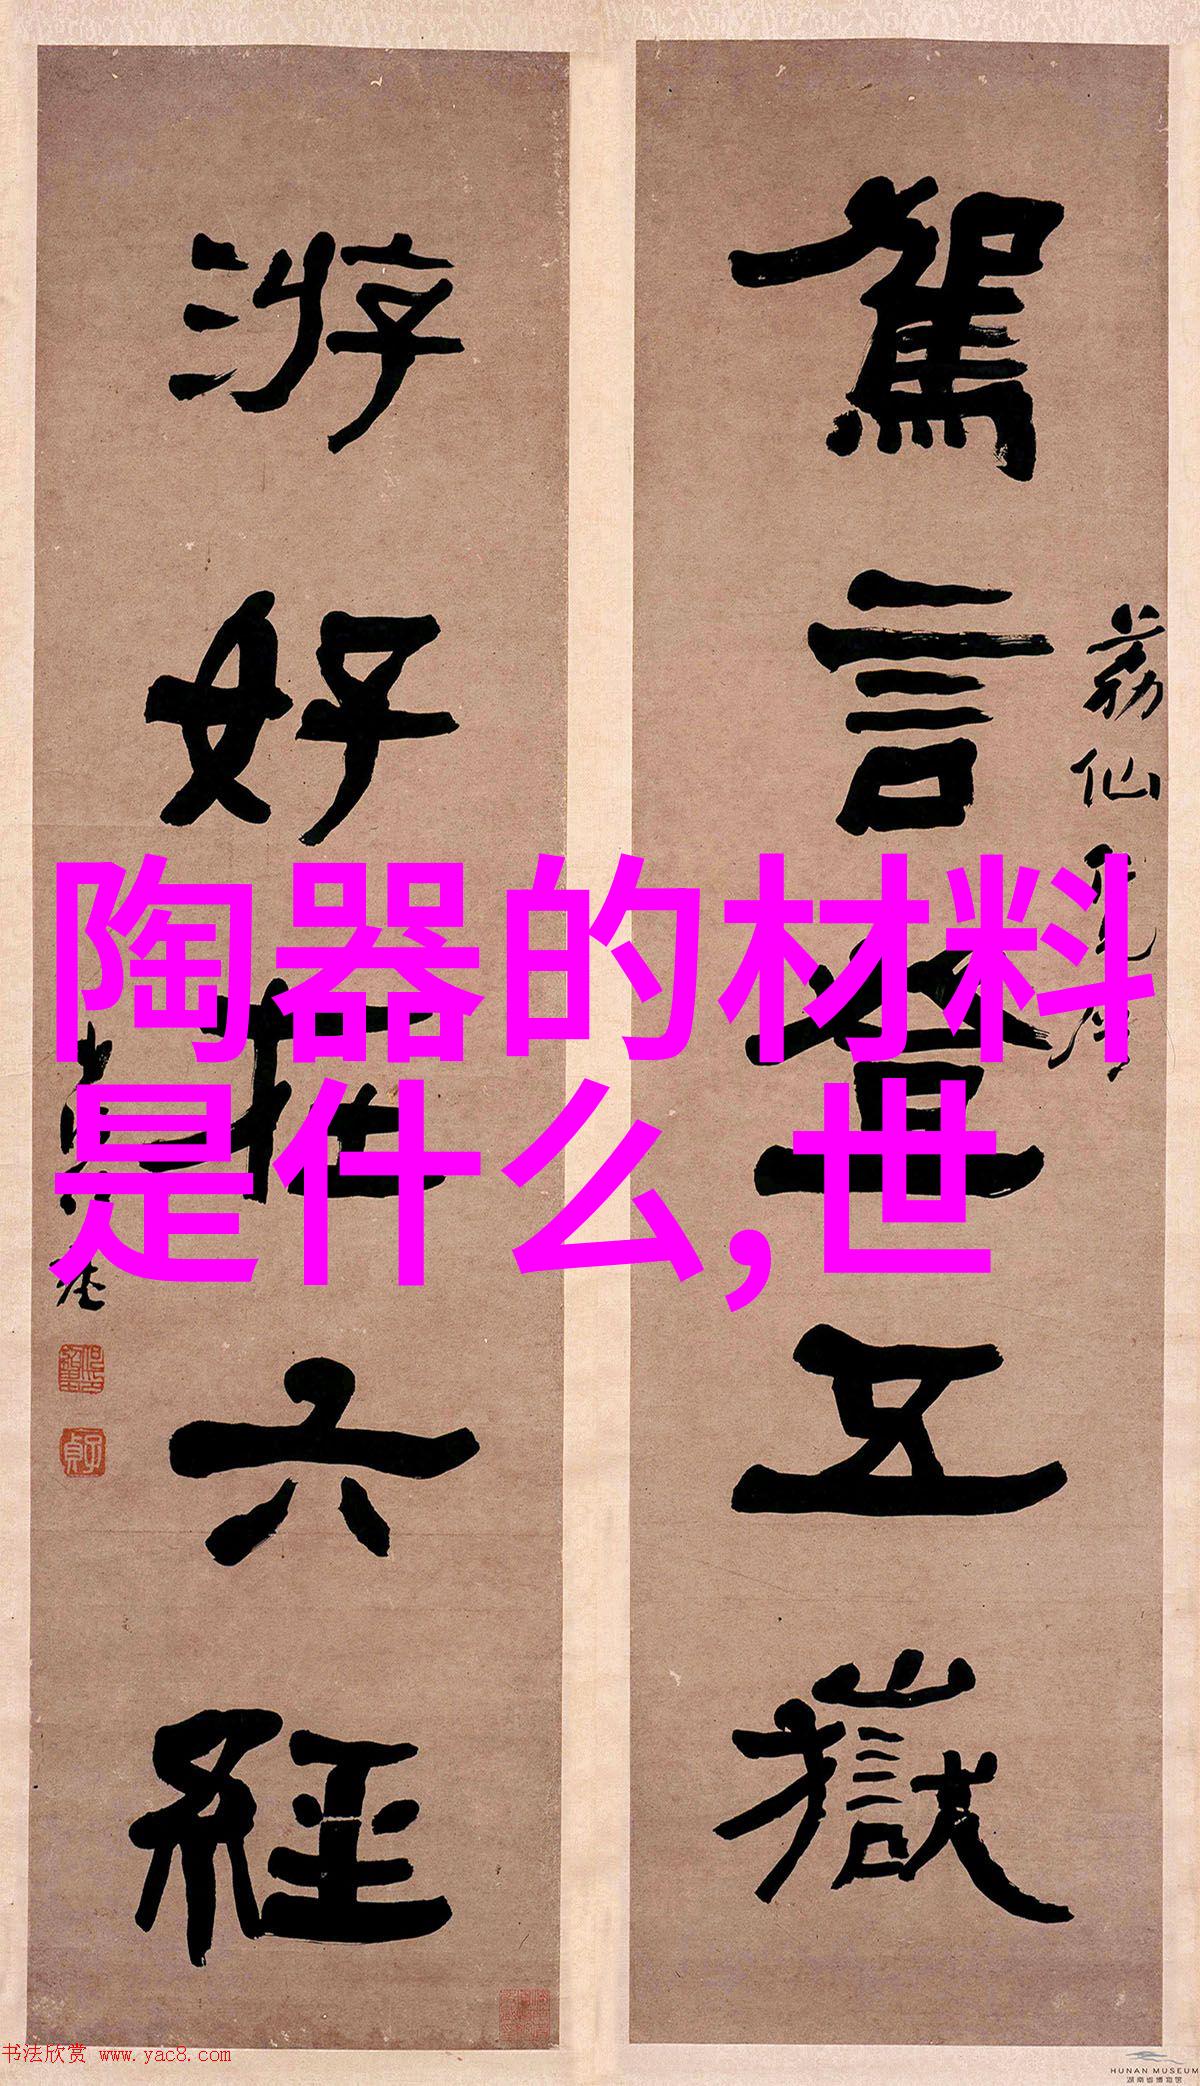 駕言登五嶽
游好在六經
荔仙
陶器的材料
是什么,世
书法欣赏 www.yac8.com
HUNAN MUSEUM
湖南省博物馆